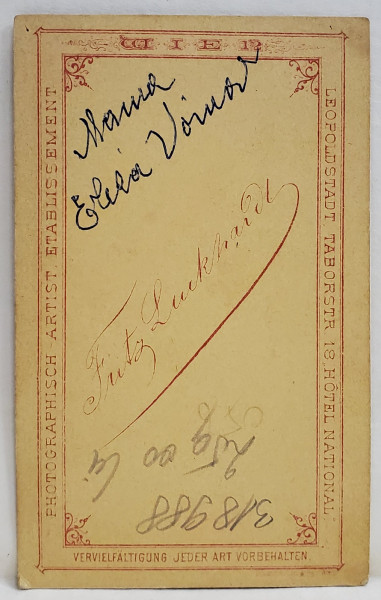 WIEN
Mama
PHOTOGRAPHISCH-ARTIST. ETABLISSEMENT
LEOPOLDSTADT TABORSTR. 18, HÔTEL NATIONAL
Fritz Luckhardt
318988
VERVIELFÄLTIGUNG JEDER ART VORBEHALTEN.